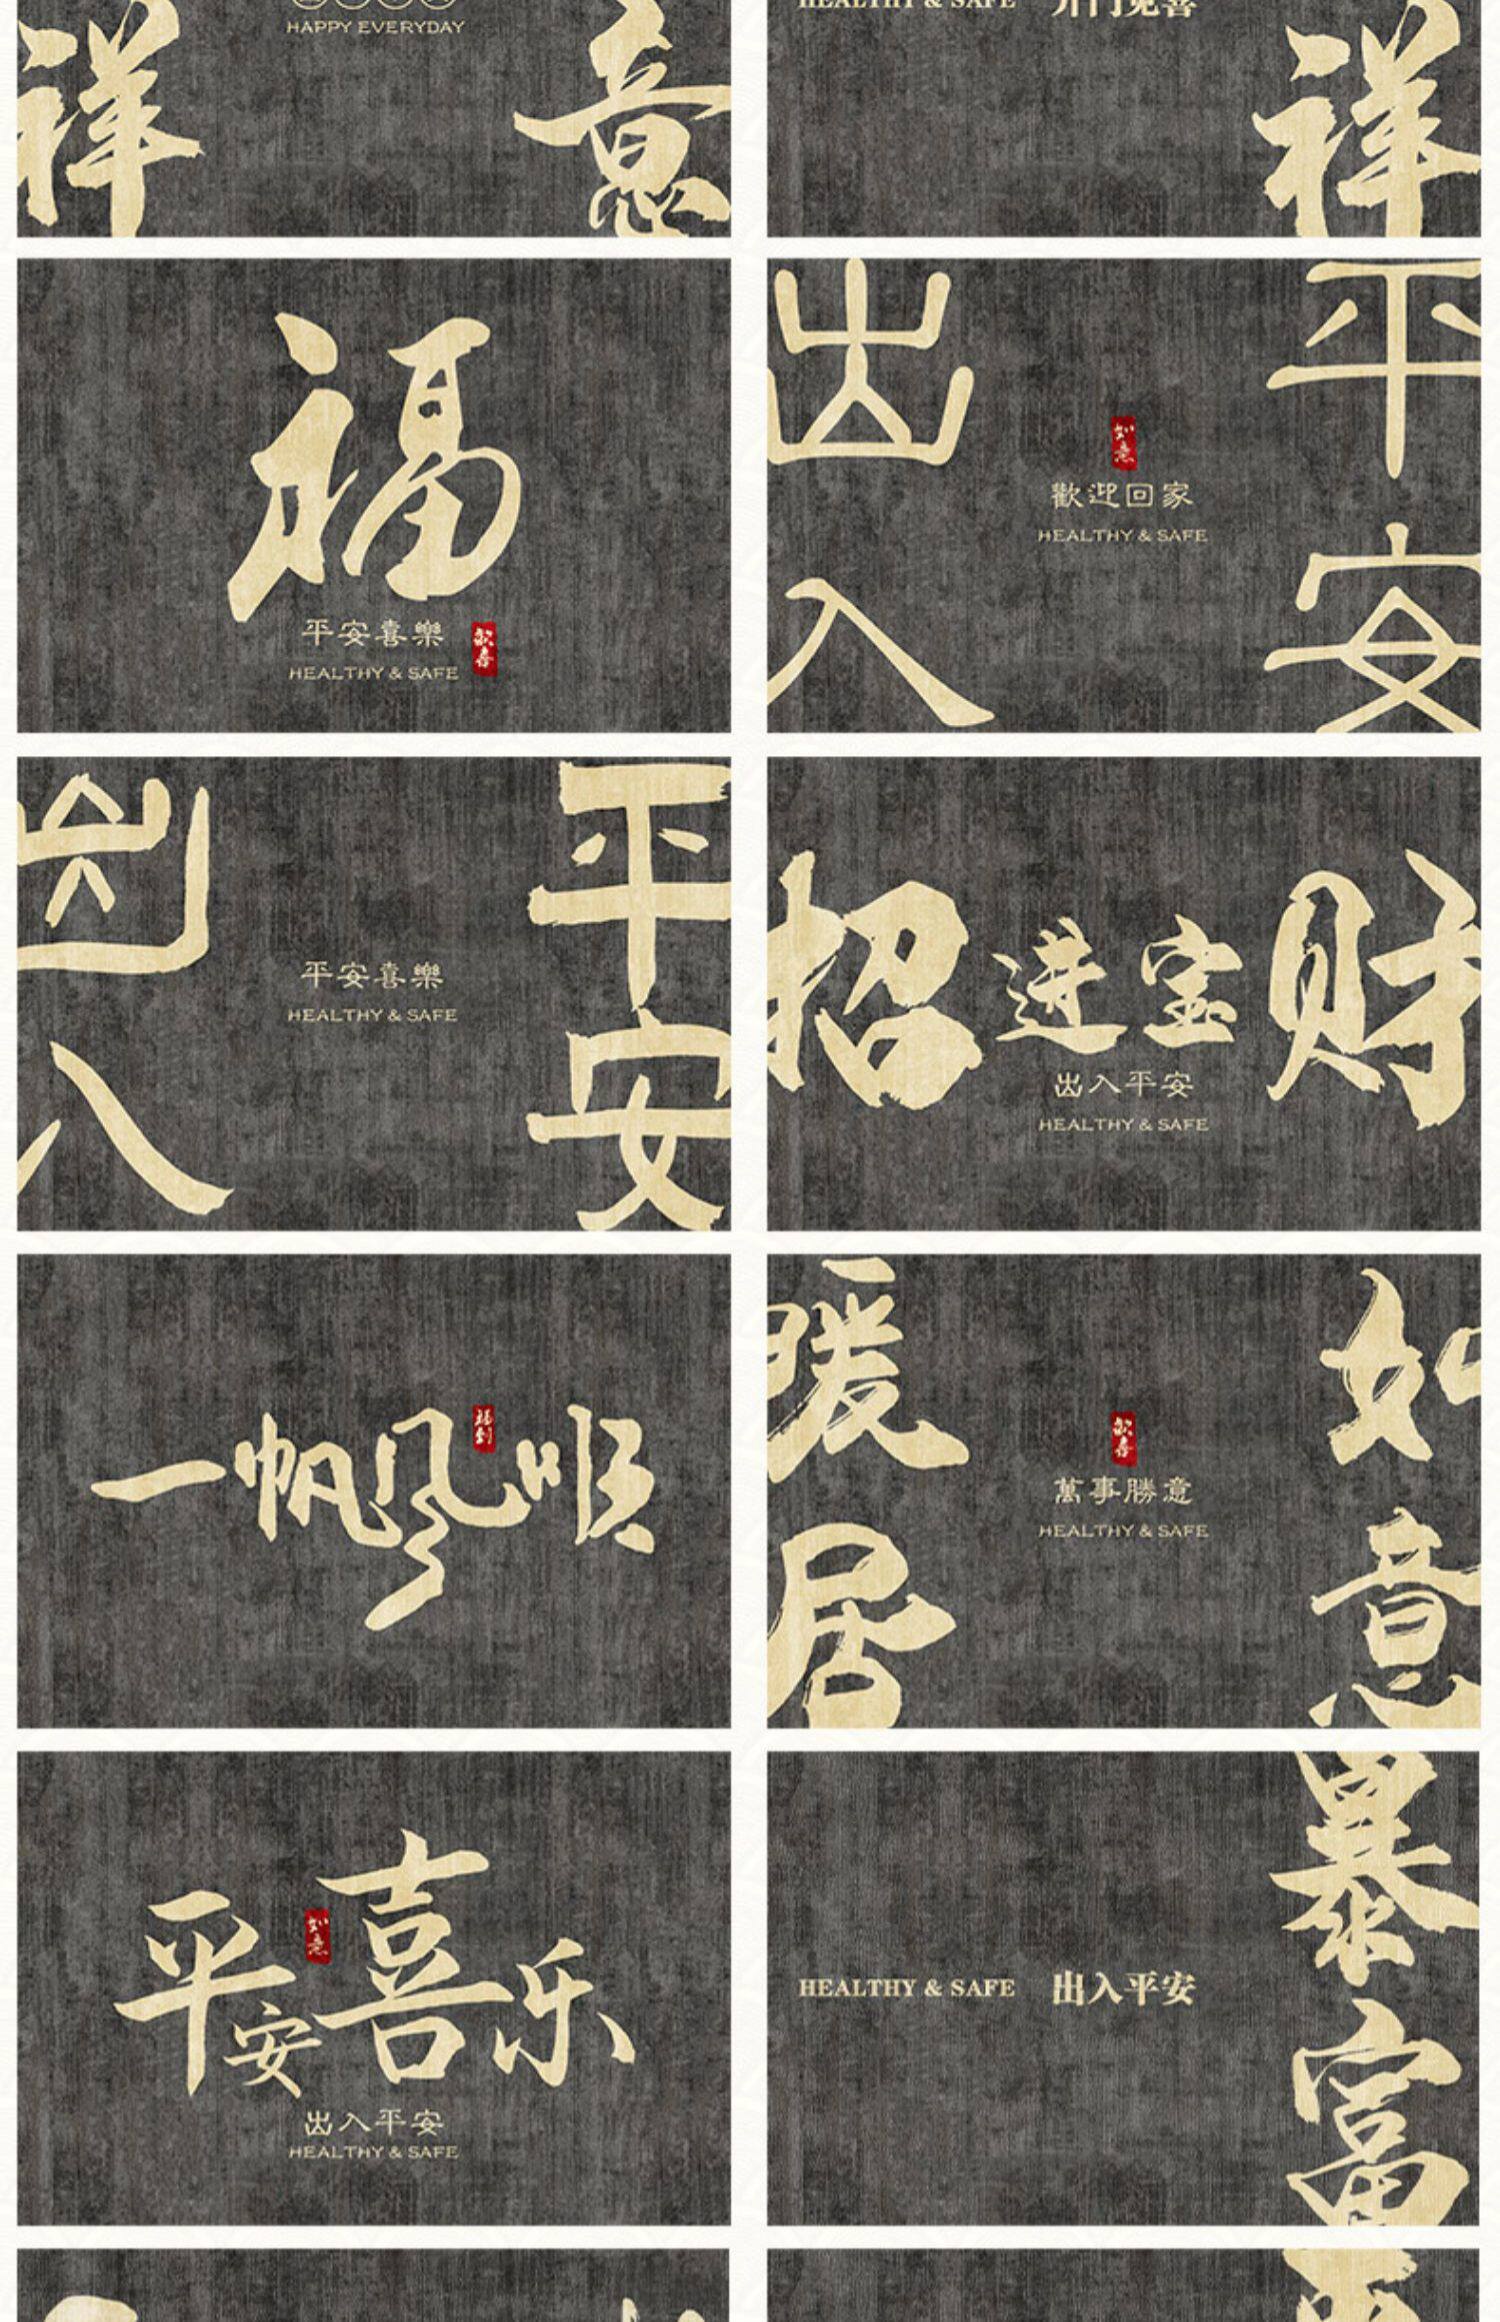 HAPPY EVERYDAY
祥
意
HEALTHY & SAFE 开门见喜
祥
福
平安喜樂
歡喜
HEALTHY & SAFE
出入
平安
如意
歡迎回家
HEALTHY & SAFE
出入
平安
平安喜樂
HEALTHY & SAFE
招财
进宝
出入平安
HEALTHY & SAFE
一帆风顺
福到
暖居
如意
歡喜
萬事勝意
HEALTHY & SAFE
平安喜乐
如意
出入平安
HEALTHY & SAFE
暴富
HEALTHY & SAFE 出入平安